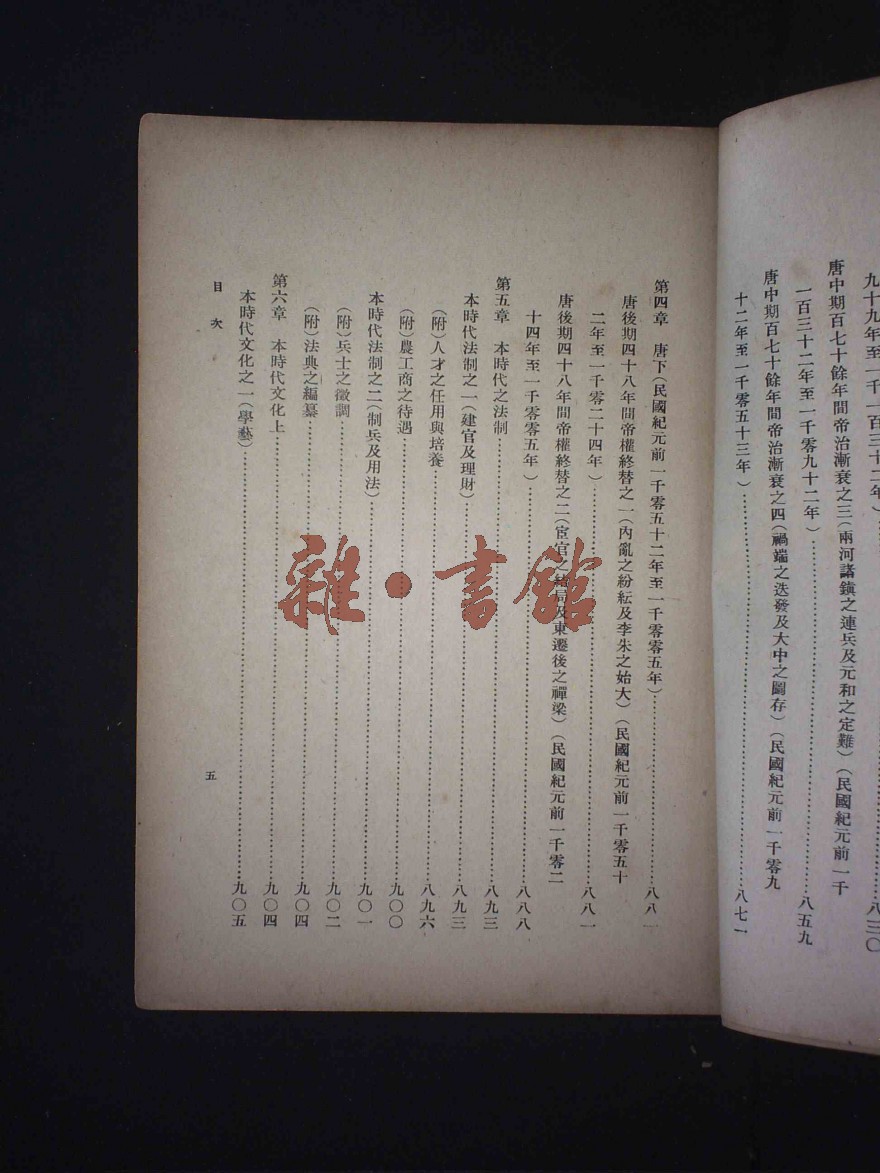 九十九年至一千一百三十二年）……八三〇
唐中期百七十餘年間帝治漸衰之三（兩河諸鎮之連兵及元和之定難）（民國紀元前一千
一百三十二年至一千零九十二年）……八五九
唐中期百七十餘年間帝治漸衰之四（禍端之迭發及大中之圖存）（民國紀元前一千零九
十二年至一千零五十三年）……八七一
第四章　唐下（民國紀元前一千零五十二年至一千零零五年）……八八一
唐後期四十八年間帝權終替之一（內亂之紛紜及李朱之始大）（民國紀元前一千零五十
二年至一千零二十四年）……八八一
唐後期四十八年間帝權終替之二（宦官之結局及東遷後之禪梁）（民國紀元前一千零二
十四年至一千零零五年）……八八八
第五章　本時代之法制……八九三
本時代法制之一（建官及理財）……八九三
（附）人才之任用與培養……八九六
（附）農工商之待遇……九〇〇
本時代法制之二（制兵及用法）……九〇一
（附）兵士之徵調……九〇二
（附）法典之編纂……九〇四
第六章　本時代文化上……九〇四
本時代文化之一（學藝）……九〇五
目次
五
雜·書館